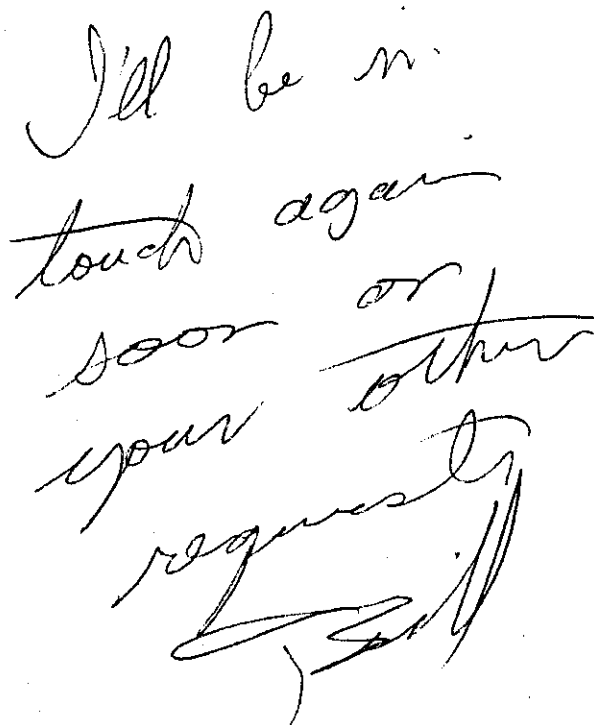 I'll be in
touch again
soon on
your other
requests
Bill